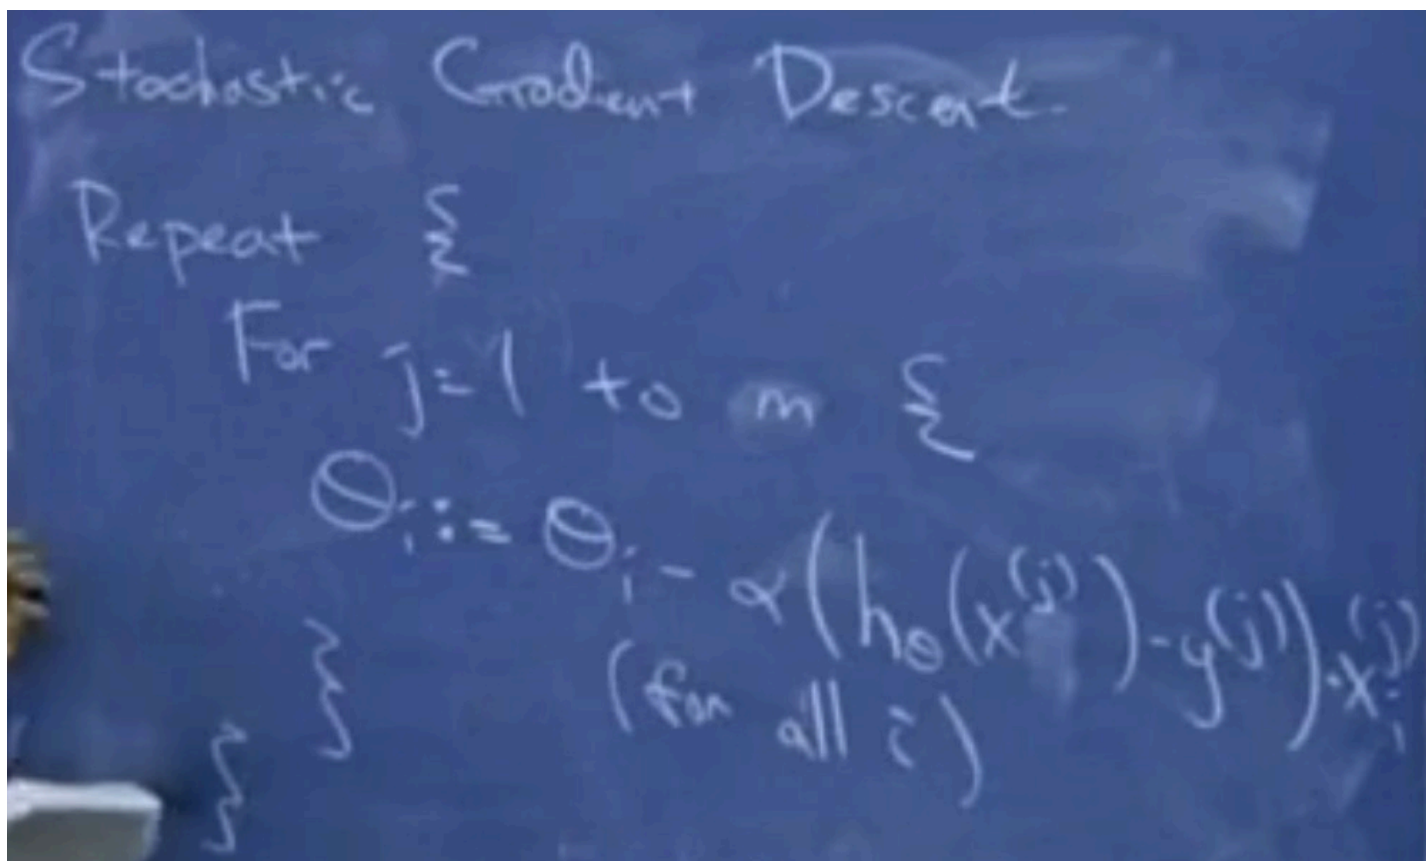 Stochastic Gradient Descent.
Repeat {
For j=1 to m {
Θᵢ := Θᵢ - α(h_θ(x^(j)) - y^(j)) · xᵢ^(j)
(for all i)
}
}